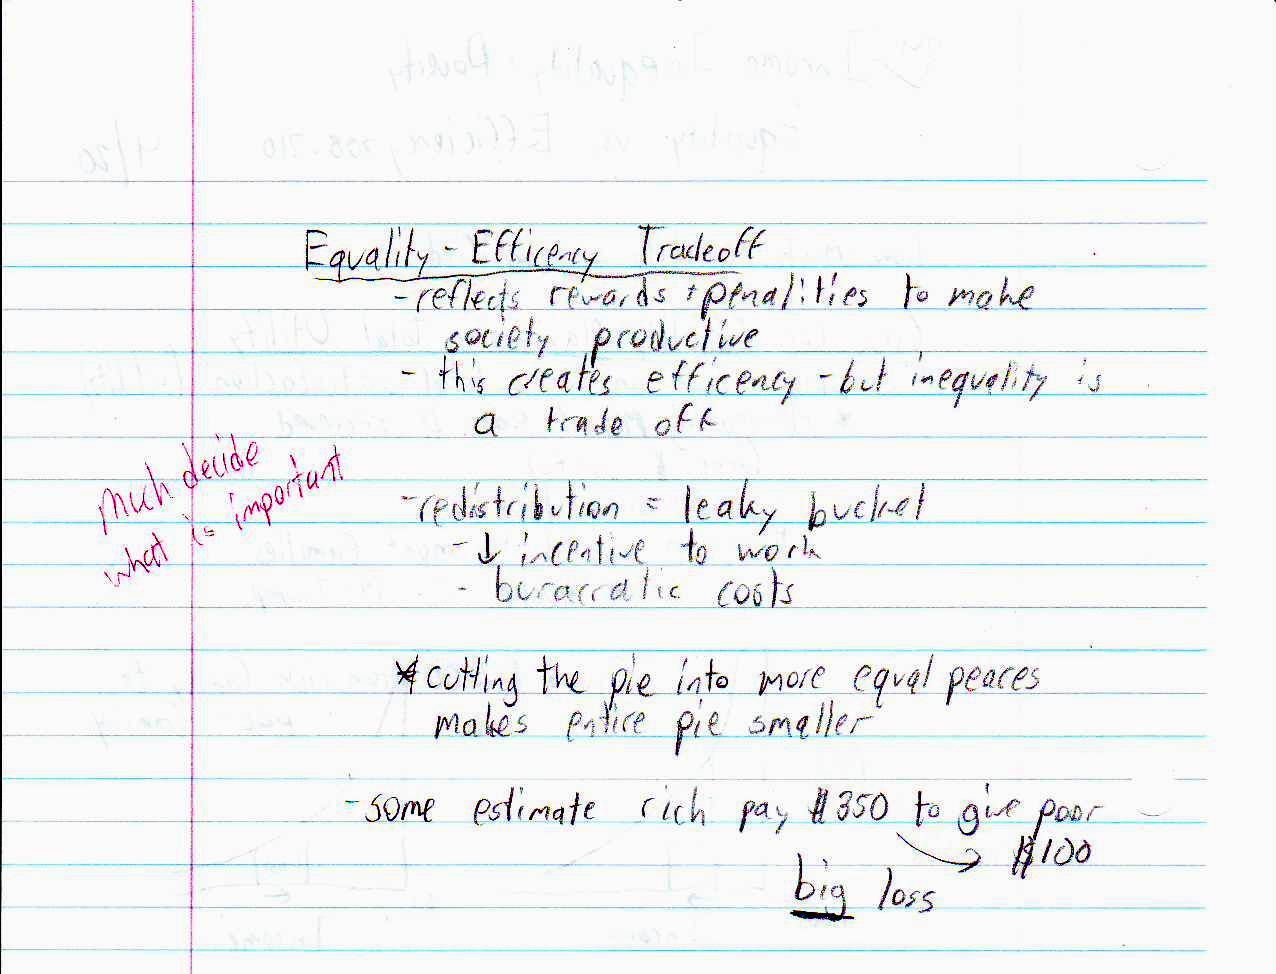 Equality - Efficency Tradeoff
- reflects rewards + penalities to make
society productive
- this creates efficency - but inequality is
a trade off
Much decide
what is important
- redistribution = leaky bucket
- ↓ incentive to work
- buracratic costs
* cutting the pie into more equal peaces
makes entire pie smaller
- some estimate rich pay $350 to give poor
$100
big loss